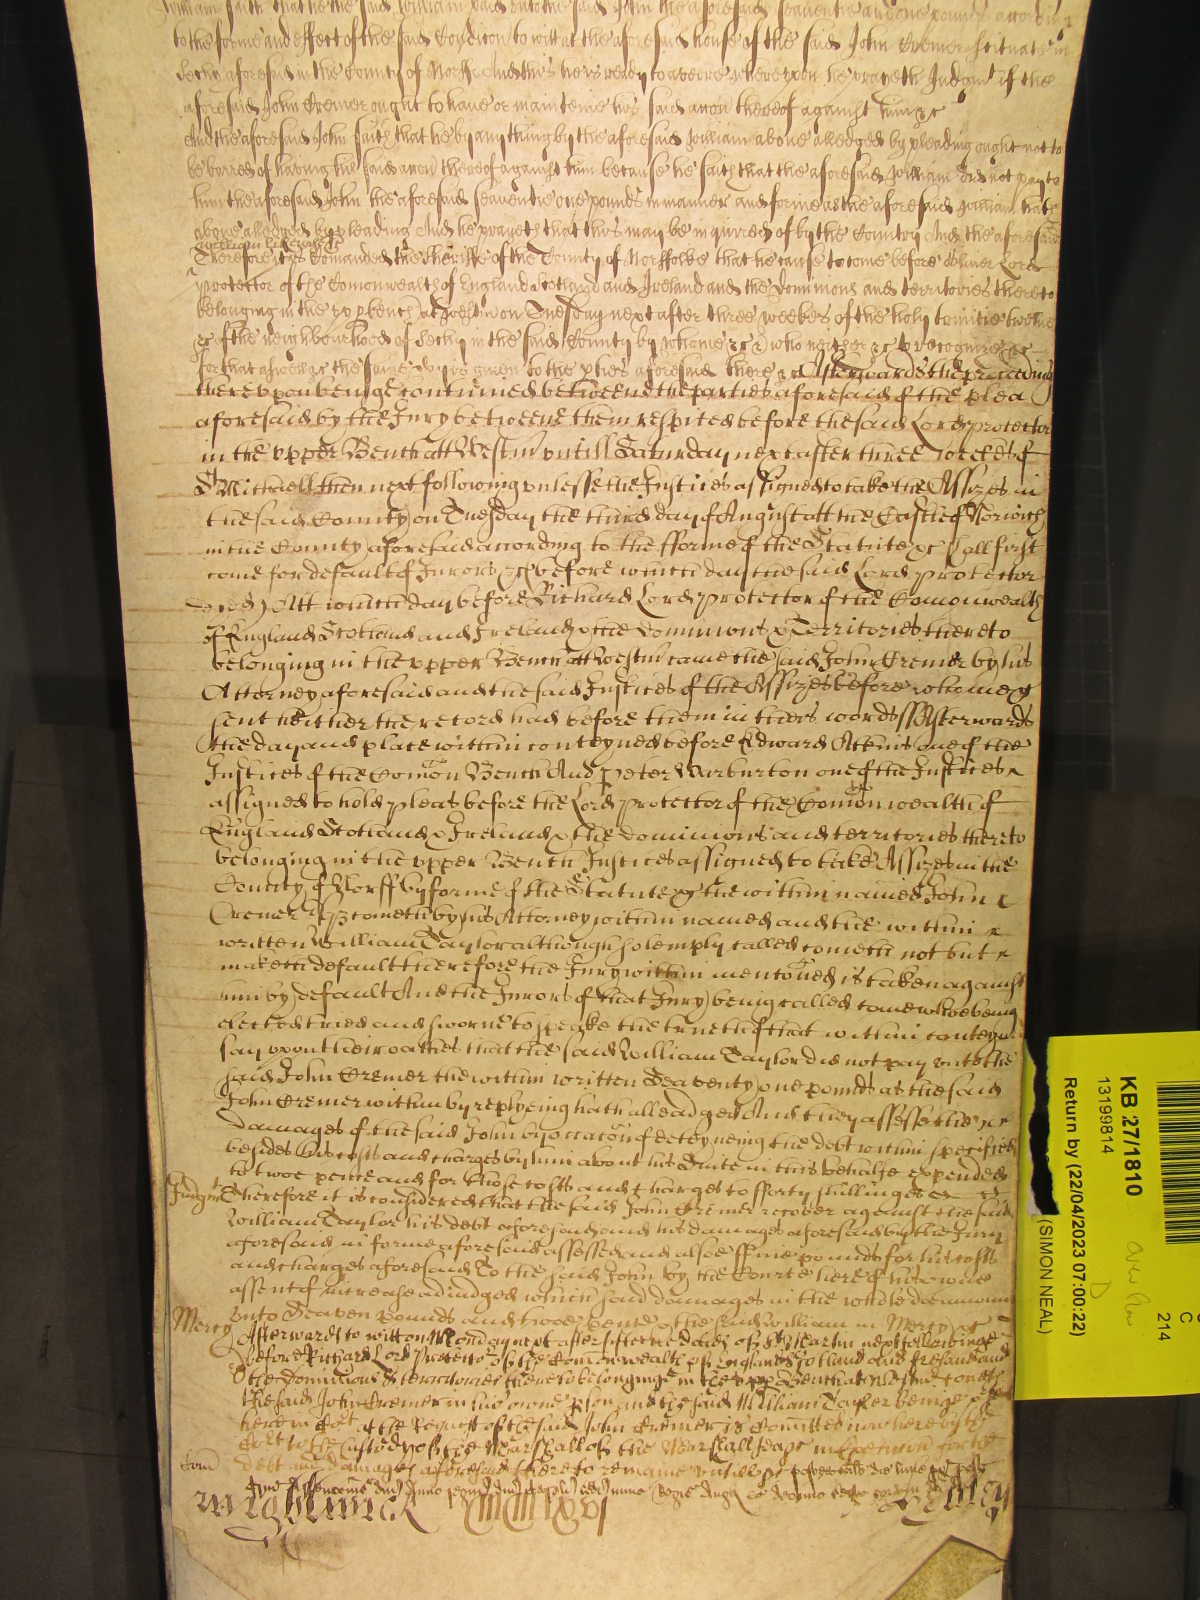 William saith that he the said William paid unto the said John the aforesaid seaventie and one pounds according
to the forme and effect of the said Condicon to witt at the aforesaid house of the said John Cremer scituate in
aforesaid in the County of Norff And this he is ready to averre whereupon he prayeth Judgmt if the
aforesaid John Cremer ought to have or mainteine his said accon thereof against him &c
And the aforesaid John saith that he by any thing by the aforesaid William above alledged by pleading ought not to
be barred of having his said accon thereof against him because he saith that the aforesaid William did not pay to
him the aforesaid John the aforesaid seaventie one pounds in manner and forme as the aforesaid William hath
above alledged by pleading And he prayeth that this may be inquired of by the Country And the aforesaid
William likewise
Therefore it is Comanded the Sheriffe of the County of Norffolke that he cause to come before Oliver Lord
protector of the Comonwealth of England Scotland and Ireland and the Dominions and territories thereto
belonging in the upp bench at Westm on Tuesday next after three weekes of the holy trinitie twelve
&c of the neighbourhood of in the said County by whome &c who neither &c to recognize &c
for that aswell &c the same day is given to the pties aforesaid there &c Afterwards the proceeding
thereupon being continued betweene the parties aforesaid of the plea
aforesaid by the Jury betweene them respited before the said Lord protector
in the upper Bench att Westm untill Saturday next after three weekes of
St Michaell then next following unlesse the Justices assigned to take the Assizes in
the said County on Tuesday the third day of August att the Castle of Norwich
in the County aforesaid according to the fforme of the Statute &c shall first
come for default of Jurors &c before which day the said Lord protector
dyed Att which day before Richard Lord protector of the Comonwealth
of England Scotland and Ireland & the dominions & Territories thereto
belonging in the upper Bench att Westm came the said John Cremer by his
Attorney aforesaid and the said Justices of the Assizes before whome &c
sent hether the record had before them in theis words ss Afterwards
the day and place within conteyned before Edward Atkins one of the
Justices of the Comon Bench And Peter Warburton one of the Justices
assigned to hold pleas before the Lord protector of the Comonwealth of
England Scotland & Ireland & the dominions and territories thereto
belonging in the upper Bench Justices assigned to take Assizes in the
County of Norff by forme of the Statute &c the within named John
Cremer cometh by his Attorney within named and the within
written William Taylor although solemply called cometh not but
maketh default therefore the Jury within mentoned is taken against
him by default And the Jurors of that Jury being called come who being
elected tried and sworne to speake the truth of that within conteyned
say upon their oathes that the said William Taylor did not pay unto the
said John Cremer the within written Seaventy one pounds as the said
John Cremer within by replyeing hath alleadged And they assesse the
damages of the said John by occacon of deteyneing the debt within specified
besides his costs and charges by him about his Suite in this behalfe expended
to twoe pence and for those costs and charges to fforty shillinges
Judgmt Therefore it is considered that the said John Cremer recover against the said
William Taylor his debt aforesaid and his damages aforesaid by the Jury
aforesaid in forme aforesaid assessed and alsoe ffive pounds for his costs
and charges aforesaid to the said John by the Courte here of his owne
assent of increase adiudged which said damages in the whole doe amount
unto Seaven Pounds and twoe pence & the said William in Mercy &c
Mercy Afterwards to witt on Monday next after fifteene daies of St Martin next following
before Richard Lord Protector of the Comonwealth of England Scotland and Ireland and
the dominions & territories thereto belonging in the upp Bench at Westm cometh
the said John Cremer in his owne pson and the said William Tayler being
here in Cort at the Request of the said John Cremer is Comitted now here by the
Cort to the custody of the Marshall of the Marshallseas in for the
debt and damages aforesaid there to remaine untill &c
Wightwick
KB 27/1810
13199814
Return by (22/04/2023 07:00:22)
(SIMON NEAL)
C
214